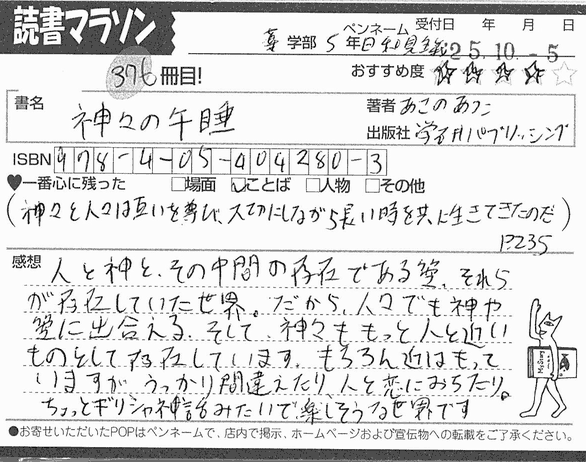 読書マラソン
ペンネーム 受付日 年 月 日
学部 5年 25.10.-5
376冊目! おすすめ度 ☆☆☆☆☆
書名 神々の午睡
著者 あさのあつこ
出版社 学研パブリッシング
ISBN 978-4-05-404280-3
♥一番心に残った □場面 ☑ことば □人物 □その他
(神々と人々は互いを尊び、大切にしながら長い時を共に生きてきたのだ)
P235
感想
人と神と、その中間の存在である聖、それら
が存在していた世界。だから、人々でも神や
聖に出会える。そして、神々ももっと人と近い
ものとして存在しています。もちろん近はもって
いますが、うっかり間違えたり、人と恋におちたり。
ちょっとギリシャ神話みたいで楽しそうな世界です
●お寄せいただいたPOPはペンネームで、店内で掲示、ホームページおよび宣伝物への転載をご了承ください。